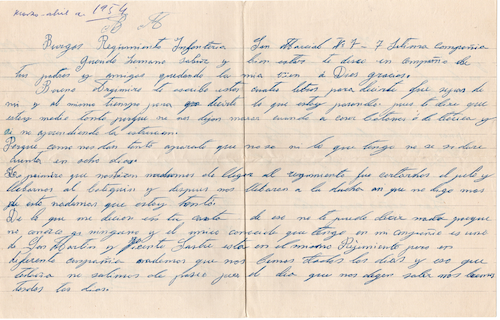 Marzo-abril a 1954
Burgos Regimiento Infanteria San Marcial Nº 7 - 7 Setima Compañia
Querido hermano salud y bien estar te deseo en compañia de
tus padres y amigos quedando la mia bien a Dios gracias.
Bueno te escribo estas cuatro letras para decirte que sepas de
mi y al mismo tiempo para decirte lo que estoy pasando pues te dire que
estoy medio tonto porque no nos dejan parar cuando a
si no aprendiendo la instrucion.
Porque como nos dan tanto que no se ni lo que tengo no se si dire
treinta en ocho dias
Lo primero que hicieron nada mas de llegar al regimiento fue cortarnos el pelo y
llebarnos al botiquin y despues nos llebaron a la ducha an que no digo mas
de este nada mas que estoy tonto.
De lo que me dices en tu carta de ese no te puedo decir nada porque
no conozco a ninguno y el unico conocido que tengo en mi compañia es uno
de San Martin y Vicente Sastre estan en el mismo Regimiento pero en
diferente compañia nada mas que nos bemos todos los dias y eso que
todabia no salimos de paseo pues el dia que nos dejen salir nos bemos
todos los dias.